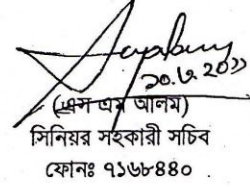 ২০.৬.২০১১
(এস এম আলম)
সিনিয়র সহকারী সচিব
ফোনঃ ৭১৬৮৪৪০.